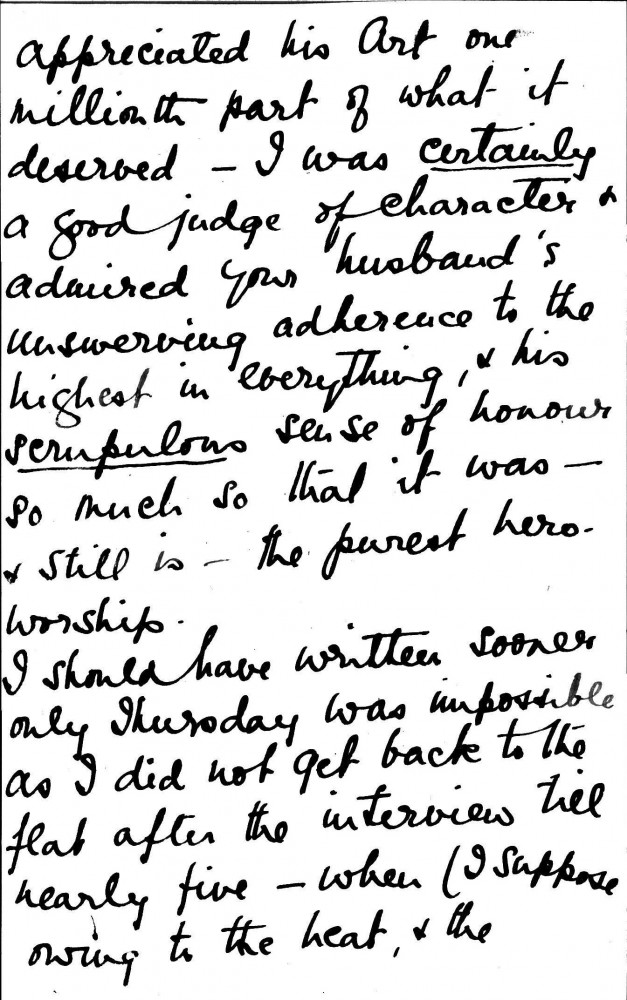 appreciated his Art one
millionth part of what it
deserved – I was certainly
a good judge of character &
admired your husband's
unswerving adherence to the
highest in everything, & his
scrupulous sense of honour
so much so that it was –
& still is – the purest hero-
worship.
I should have written sooner
only Thursday was impossible
as I did not get back to the
flat after the interview till
nearly five – when (I suppose
owing to the heat, & the